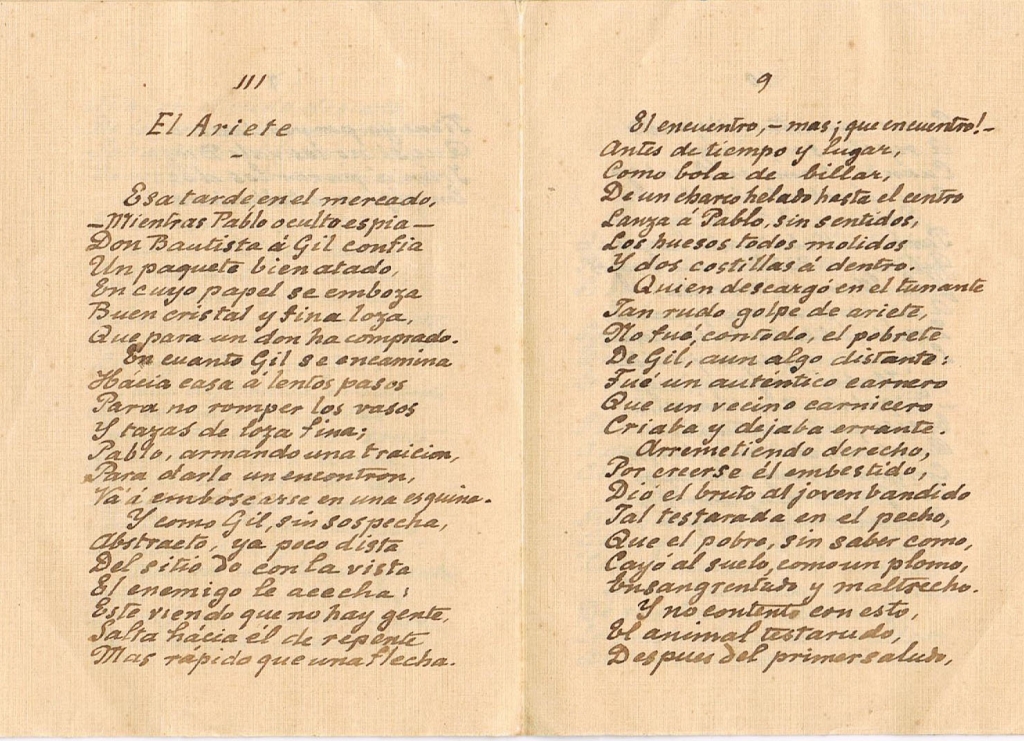 III
El Ariete
-
Esa tarde en el mercado,
—Mientras Pablo oculto espia—
Don Bautista á Gil confia
Un paquete bien atado,
En cuyo papel se emboza
Buen cristal y fina loza,
Que para un don ha comprado.
En cuanto Gil se encamina
Hácia casa á lentos pasos
Para no romper los vasos
Y tazas de loza fina;
Pablo, armando una traicion,
Para darle un encontron,
Vá á emboscarse en una esquina.
Y como Gil, sin sospecha,
Abstracto, ya poco dista
Del sitio do con la vista
El enemigo le acecha:
Este viendo que no hay gente,
Salta hácia él de repente
Mas rápido que una flecha.
9
El encuentro, - mas ¡que encuentro! -
Antes de tiempo y lugar,
Como bola de billar,
De un charco helado hasta el centro
Lanza á Pablo, sin sentidos,
Los huesos todos molidos
Y dos costillas á dentro.
Quien descargó en el tunante
Tan rudo golpe de ariete,
No fué, contodo, el pobrete
De Gil, aun algo distante:
Fué un auténtico carnero
Que un vecino carnicero
Criaba y dejaba errante.
Arremetiendo derecho,
Por creerse él embestido,
Dió el bruto al joven bandido
Tal testarada en el pecho,
Que el pobre, sin saber como,
Cayó al suelo, como un plomo,
Ensangrentado y maltrecho.
Y no contento con esto,
El animal testarudo,
Despues del primer saludo,